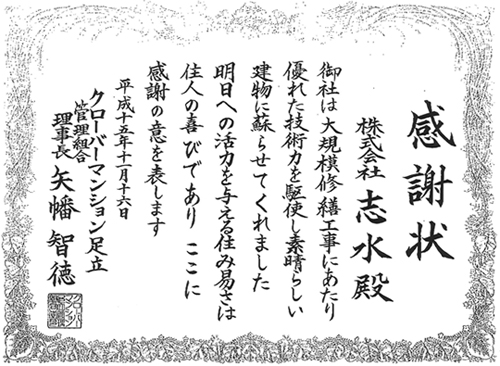 感謝状
株式会社 志水殿
御社は大規模修繕工事にあたり
優れた技術力を駆使し素晴らしい
建物に蘇らせてくれました
明日への活力を与える住み易さは
住人の喜びであり ここに
感謝の意を表します
平成十五年十一月十六日
クローバーマンション足立
管理組合
理事長 矢幡智徳